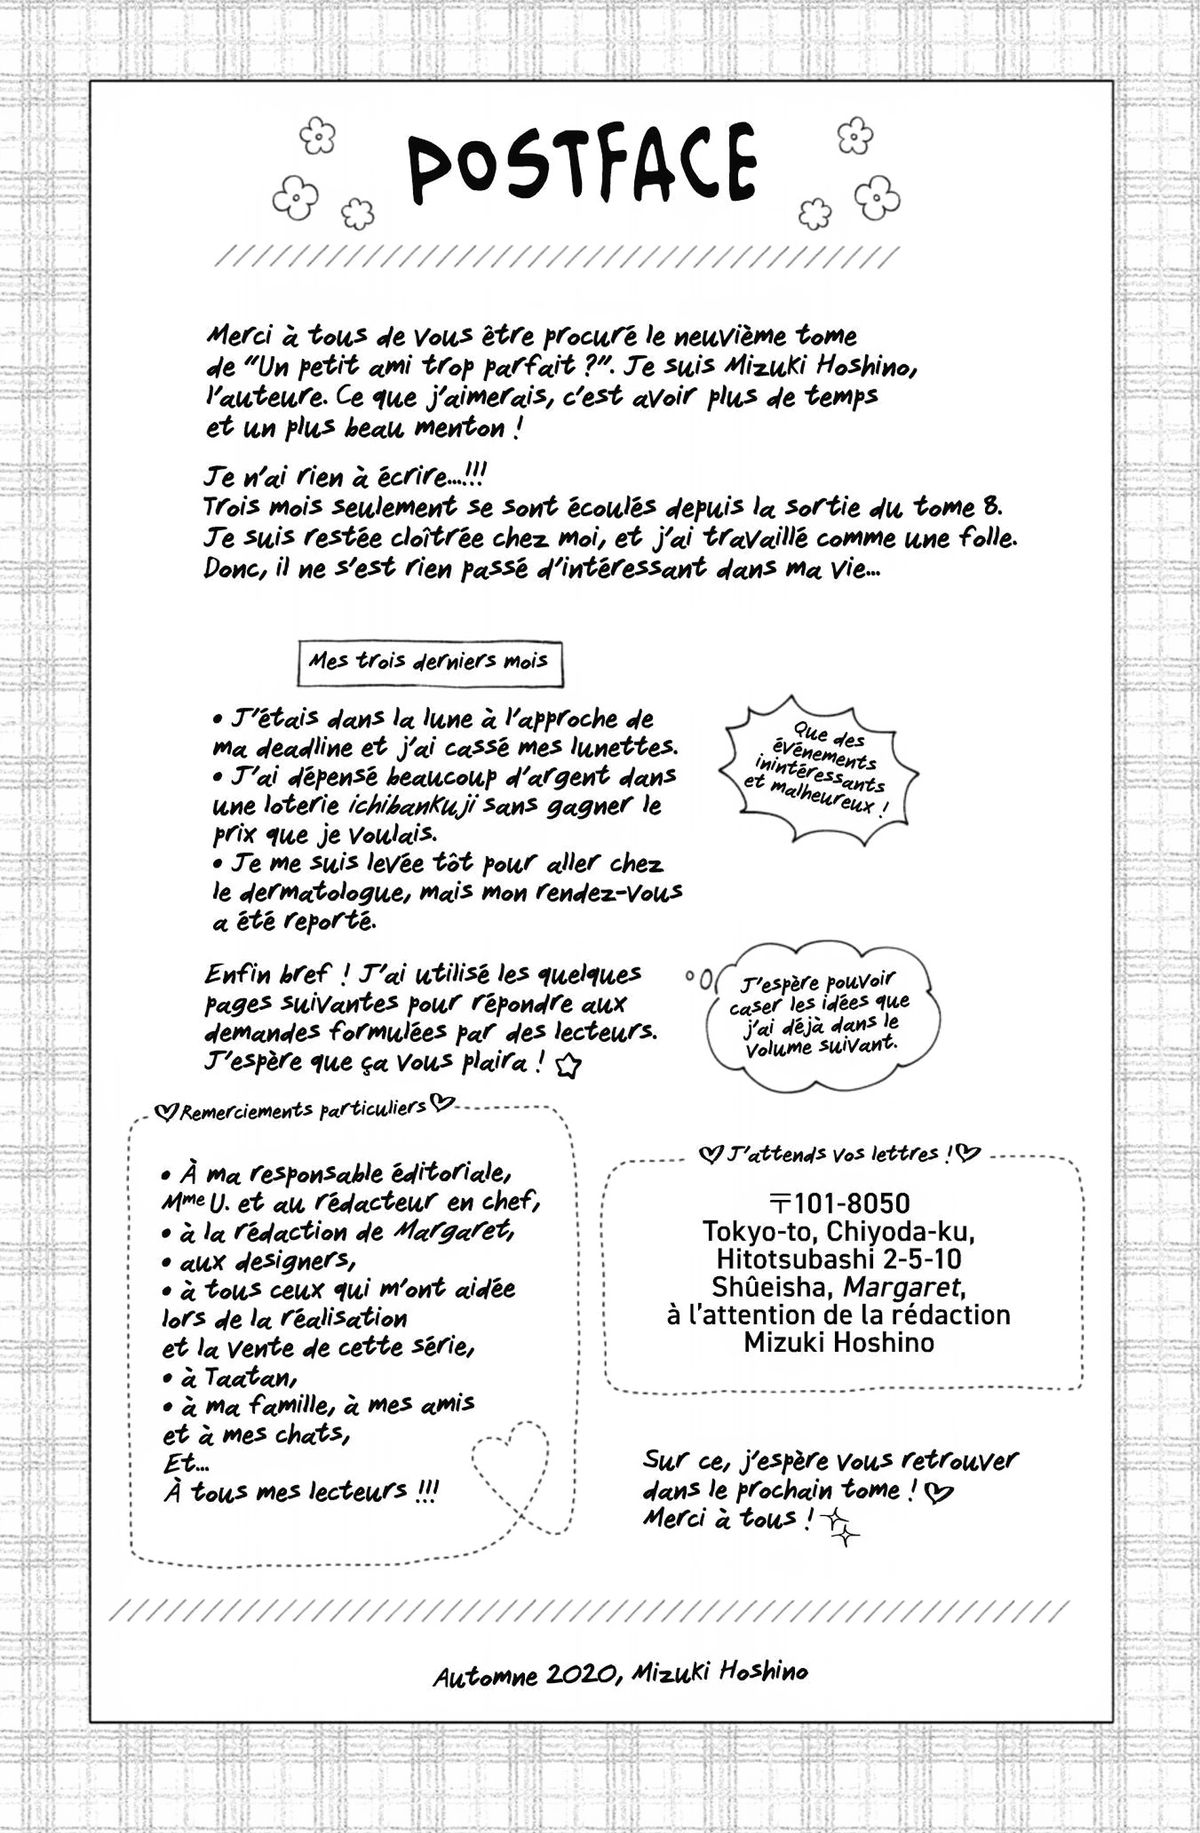 POSTFACE
Merci à tous de vous être procuré le neuvième tome
de “Un petit ami trop parfait ?”. Je suis Mizuki Hoshino,
l’auteure. Ce que j’aimerais, c’est avoir plus de temps
et un plus beau menton !
Je n’ai rien à écrire...!!!
Trois mois seulement se sont écoulés depuis la sortie du tome 8.
Je suis restée cloîtrée chez moi, et j’ai travaillé comme une folle.
Donc, il ne s’est rien passé d’intéressant dans ma vie...
Mes trois derniers mois
• J’étais dans la lune à l’approche de
ma deadline et j’ai cassé mes lunettes.
• J’ai dépensé beaucoup d’argent dans
une loterie ichibankuji sans gagner le
prix que je voulais.
• Je me suis levée tôt pour aller chez
le dermatologue, mais mon rendez-vous
a été reporté.
Que des
événements
inintéressants
et malheureux !
Enfin bref ! J’ai utilisé les quelques
pages suivantes pour répondre aux
demandes formulées par des lecteurs.
J’espère que ça vous plaira !
J’espère pouvoir
caser les idées que
j’ai déjà dans le
volume suivant.
Remerciements particuliers
• À ma responsable éditoriale,
Mme U. et au rédacteur en chef,
• à la rédaction de Margaret,
• aux designers,
• à tous ceux qui m’ont aidée
lors de la réalisation
et la vente de cette série,
• à Taatan,
• à ma famille, à mes amis
et à mes chats,
Et...
À tous mes lecteurs !!!
J’attends vos lettres !
〒101-8050
Tokyo-to, Chiyoda-ku,
Hitotsubashi 2-5-10
Shûeisha, Margaret,
à l’attention de la rédaction
Mizuki Hoshino
Sur ce, j’espère vous retrouver
dans le prochain tome !
Merci à tous !
Automne 2020, Mizuki Hoshino